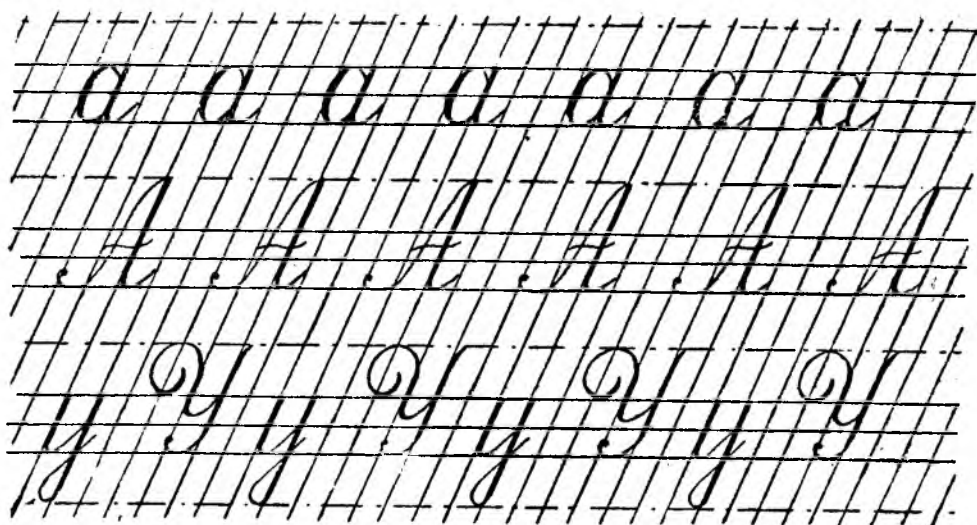 а а а а а а а
А А А А А А
у У у У у У у У